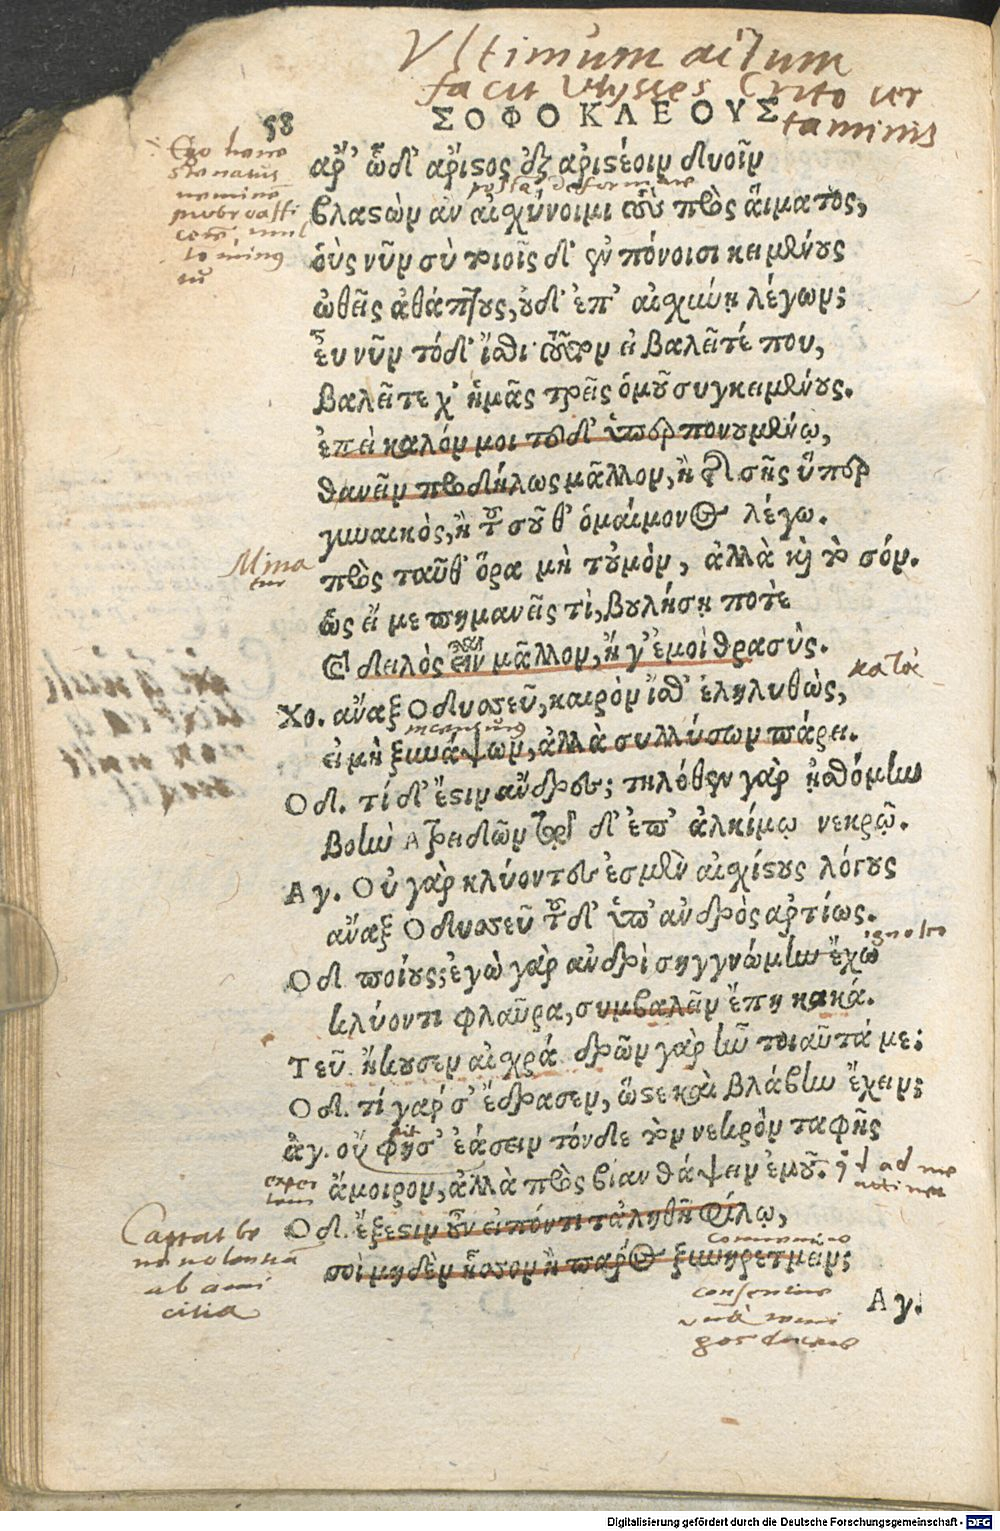 Vltimum actum
facit Vlysses
58
ΣΟΦΟΚΛΕΟΥΣ
ἆρ' ὧδ' ἄριστος ἐξ ἀριστέοιν δυοῖν
βλαστὼν ἂν αἰσχύνοιμι τοὺς πρὸς αἵματος,
οὓς νῦν σὺ τοιοῖσδ' ἐν πόνοισι κειμένους
ὠθεῖς ἀθάπτους, οὐδ' ἐπ' αἰσχύνῃ λέγων;
εὖ νῦν τόδ' ἴσθι τοῦτον εἰ βαλεῖτέ που,
βαλεῖτε χ' ἡμᾶς τρεῖς ὁμοῦ συγκειμένους.
ἐπεὶ καλόν μοι τοῦδ' ὑπερπονουμένῳ,
θανεῖν προδήλως μᾶλλον, ἢ τῆς σῆς ὕπερ
γυναικὸς, ἢ τοῦ σοῦ θ' ὁμαίμονος λέγω.
Minatur
πρὸς ταῦθ' ὅρα μὴ τοὐμὸν, ἀλλὰ καὶ τὸ σόν.
ὡς εἴ με πημανεῖς τὶ, βουλήσῃ ποτὲ
καὶ δειλὸς εἶναι μᾶλλον, ἢ γ' ἐμοὶ θρασύς.
Χο. ἄναξ Ὀδυσσεῦ, καιρὸν ἴσθ' ἐληλυθὼς,
εἰ μὴ ξυνάψων, ἀλλὰ συλλύσων πάρει.
Οδ. τί δ' ἔστιν ἄνδρες; τηλόθεν γὰρ ᾐσθόμην
βοὴν Ἀτρειδῶν τῷδ' ἐπ' ἀλκίμῳ νεκρῷ.
Αγ. Οὐ γὰρ κλύοντες ἐσμὲν αἰσχίστους λόγους
ἄναξ Ὀδυσσεῦ τοῦδ' ὑπ' ἀνδρὸς ἀρτίως.
Οδ. ποίους; ἐγὼ γὰρ ἀνδρὶ συγγνώμην ἔχω
ignosco
κλύοντι φλαῦρα, συμβαλεῖν ἔπη κακά.
Τεῦ. ἤκουσεν αἰσχρά δρῶν γὰρ ἦν τοιαῦτά με;
Οδ. τί γάρ σ' ἔδρασεν, ὥστε καὶ βλάβην ἔχειν;
ἀγ. οὔ φησ' ἐάσειν τόνδε τὸν νεκρὸν ταφῆς
ἄμοιρον, ἀλλὰ πρὸς βίαν θάψειν ἐμοῦ.
Οδ. ἔξεστιν οὖν εἰπόντι τἀληθῆ φίλῳ,
σοὶ μηδὲν ἧσσον ἢ πάρος ξυνηρετμεῖν;
Captat be
neuolentiam
ab ami
citia
Αγ.
Digitalisierung gefördert durch die Deutsche Forschungsgemeinschaft - DFG